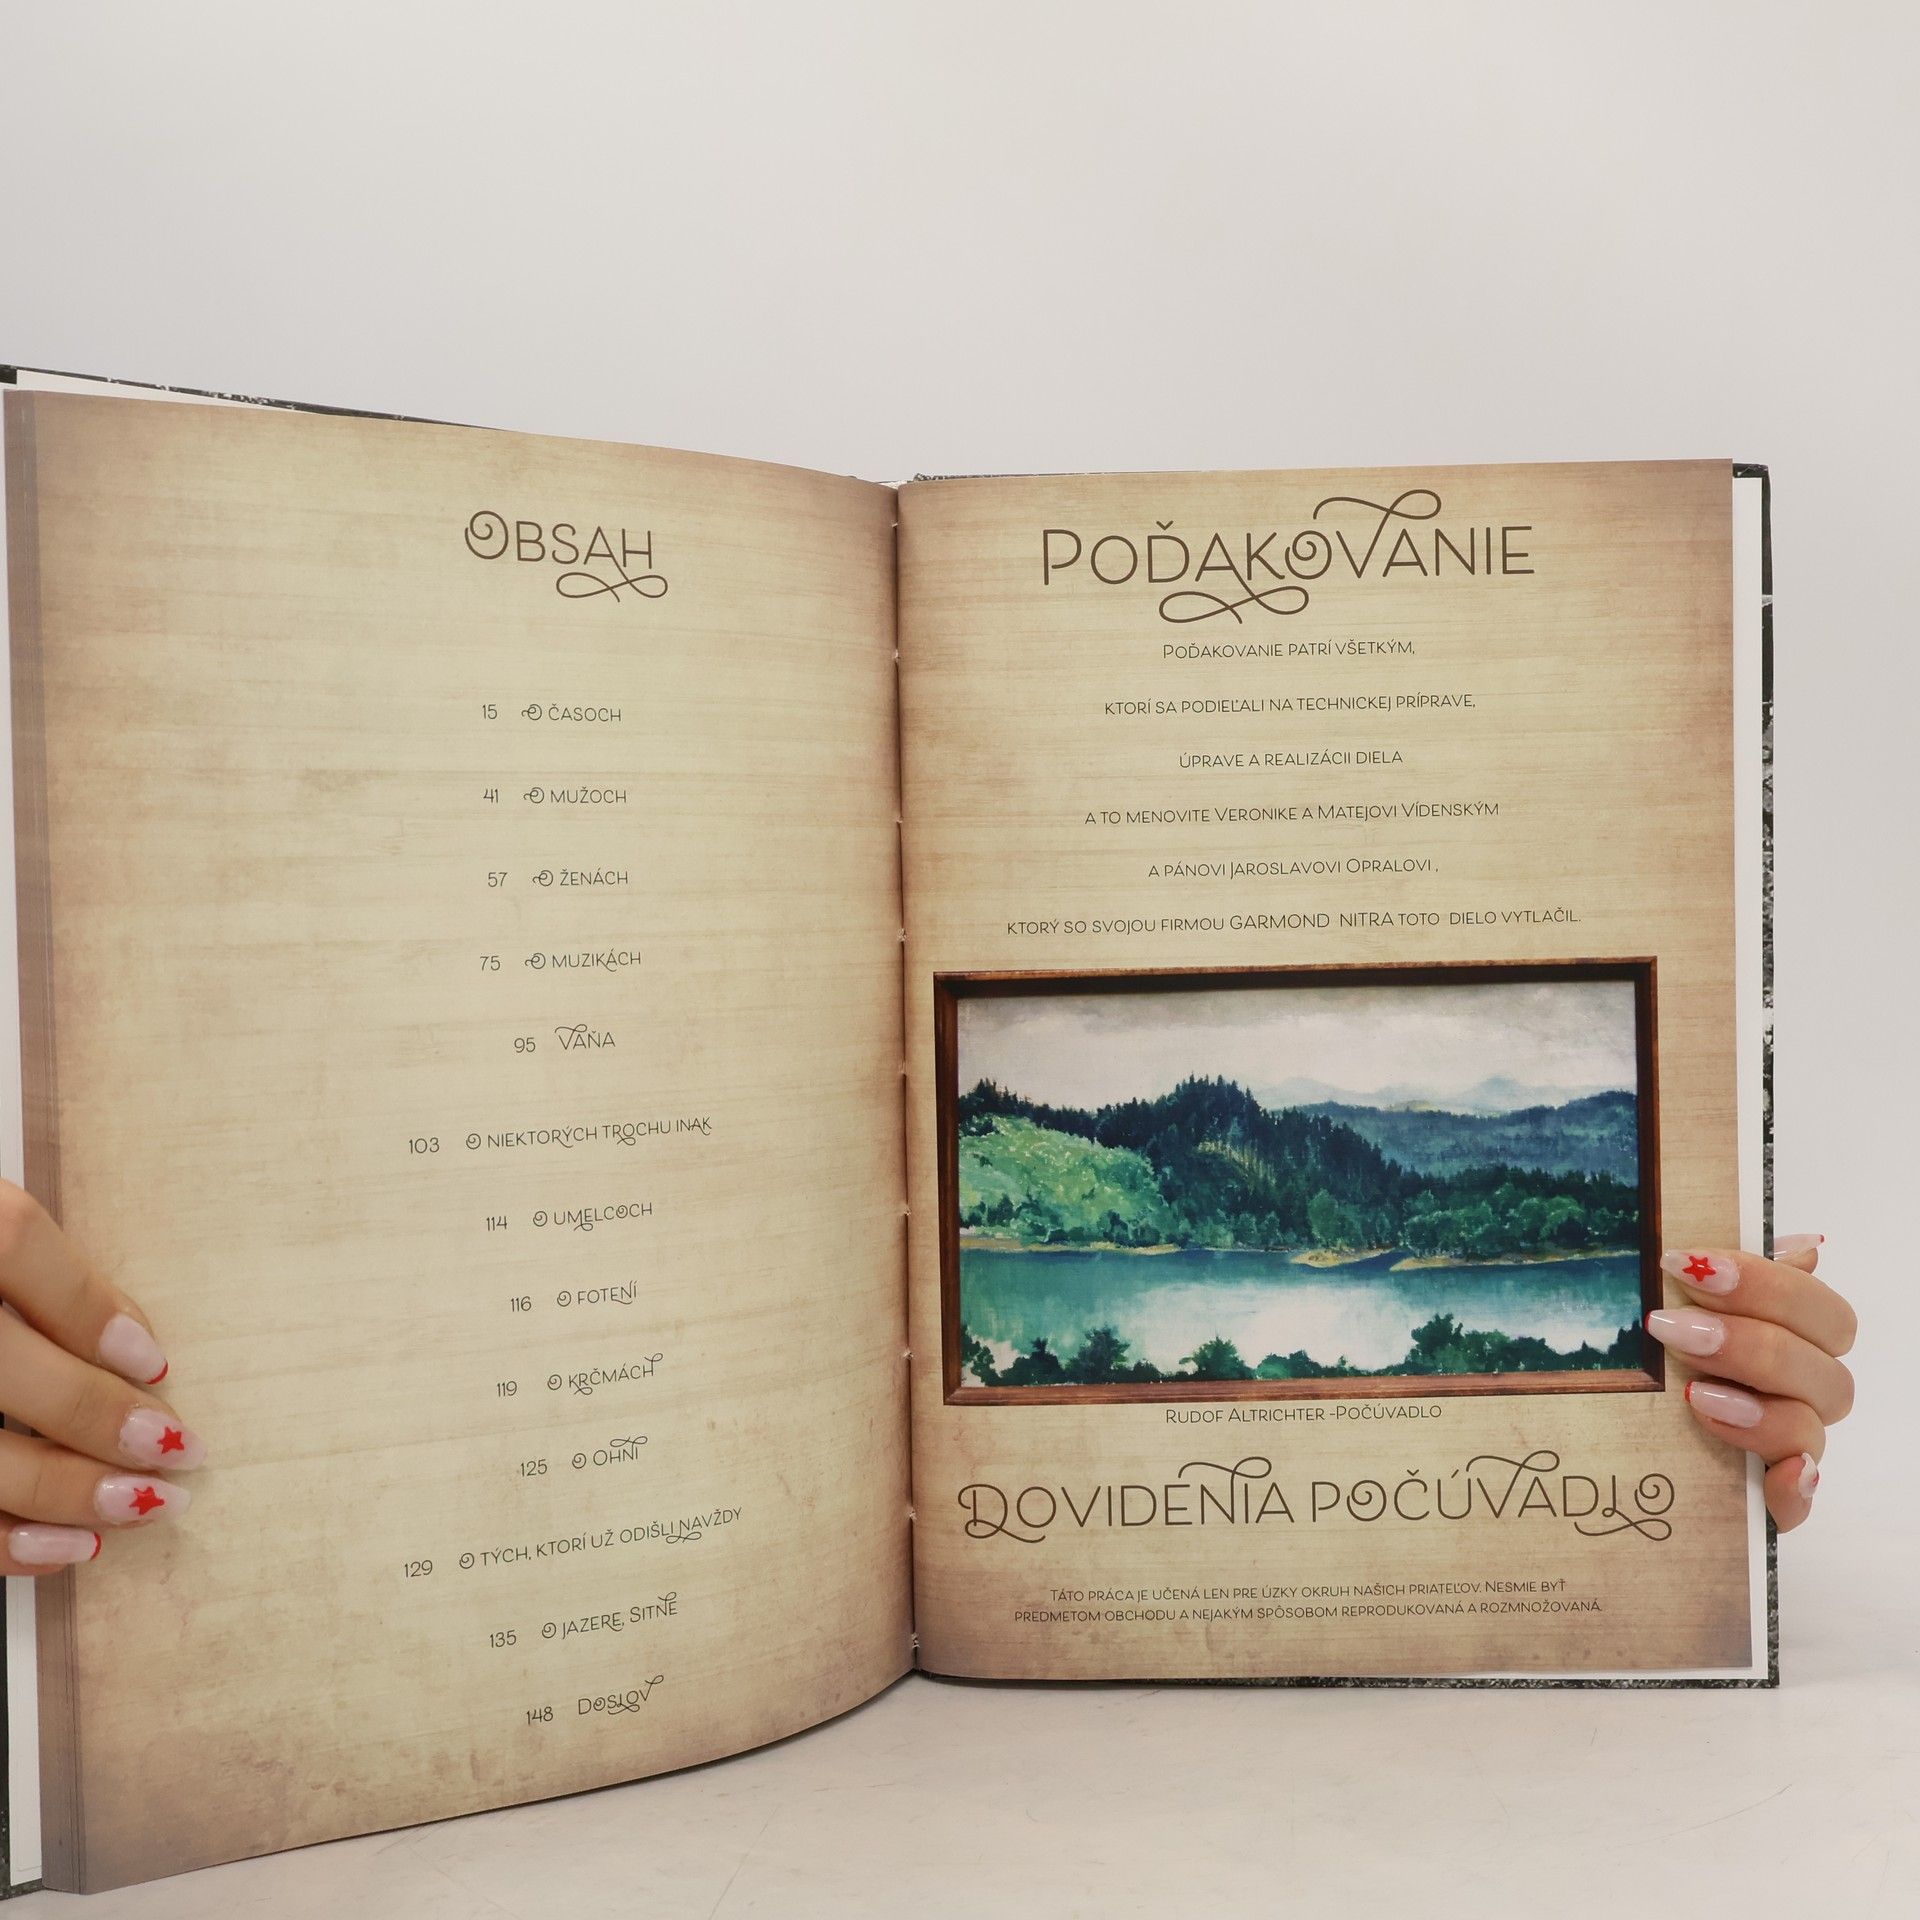 OBSAH
15 O ČASOCH
41 O MUŽOCH
57 O ŽENÁCH
75 O MUZIKÁCH
95 VAŇA
103 O NIEKTORÝCH TROCHU INAK
114 O UMELCOCH
116 O FOTENÍ
119 O KRČMÁCH
125 O OHNI
129 O TÝCH, KTORÍ UŽ ODIŠLI NAVŽDY
135 O JAZERE, SITNE
148 DOSLOV
POĎAKOVANIE
POĎAKOVANIE PATRÍ VŠETKÝM,
KTORÍ SA PODIEĽALI NA TECHNICKEJ PRÍPRAVE,
ÚPRAVE A REALIZÁCII DIELA
A TO MENOVITE VERONIKE A MATEJOVI VÍDENSKÝM
A PÁNOVI JAROSLAVOVI OPRALOVI ,
KTORÝ SO SVOJOU FIRMOU GARMOND NITRA TOTO DIELO VYTLAČIL.
RUDOF ALTRICHTER -POČÚVADLO
DOVIDENIA POČÚVADLO
TÁTO PRÁCA JE UČENÁ LEN PRE ÚZKY OKRUH NAŠICH PRIATEĽOV. NESMIE BYŤ
PREDMETOM OBCHODU A NEJAKÝM SPÔSOBOM REPRODUKOVANÁ A ROZMNOŽOVANÁ.